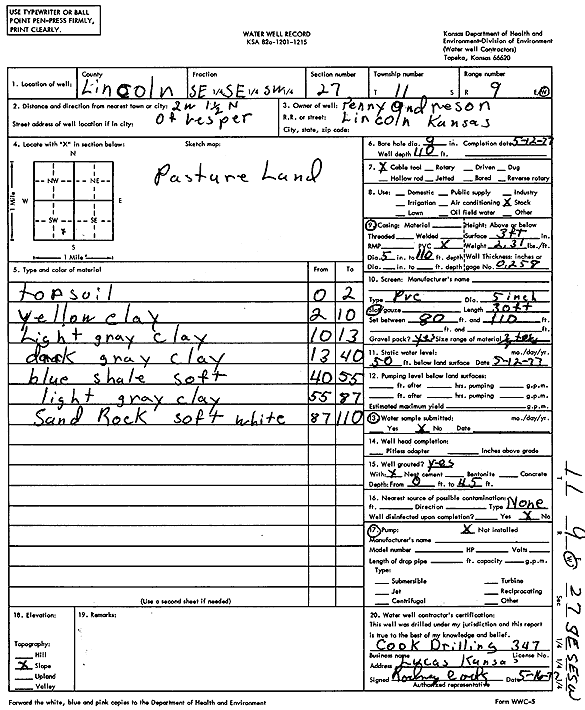 USE TYPEWRITER OR BALL
POINT PEN-PRESS FIRMLY,
PRINT CLEARLY.
WATER WELL RECORD
KSA 82a-1201-1215
Kansas Department of Health and
Environment-Division of Environment
(Water well Contractors)
Topeka, Kansas 66620
1. Location of well: County Lincoln Fraction SE 1/4 SE 1/4 SW 1/4 Section number 27 Township number T 11 S Range number R 9 E/W
2. Distance and direction from nearest town or city: 2w 1½ N
Street address of well location if in city: Of Vesper
3. Owner of well: Penny Andreson
R.R. or street: Lincoln Kansas
City, state, zip code:
4. Locate with "X" in section below: Sketch map:
N
NW NE
W E
SW SE
S
1 Mile
1 Mile
Pasture Land
5. Type and color of material From To
topsoil 0 2
yellow clay 2 10
Light gray clay 10 13
dark gray clay 13 40
blue shale soft 40 55
light gray clay 55 87
Sand Rock soft white 87 110
(Use a second sheet if needed)
6. Bore hole dia. 9 in. Completion date 5-12-77
Well depth 110 ft.
7. X Cable tool Rotary Driven Dug
Hollow rod Jetted Bored Reverse rotary
8. Use: Domestic Public supply Industry
Irrigation Air conditioning X Stock
Lawn Oil field water Other
9. Casing: Material Height: Above or below
Threaded Welded Surface 3ft in.
RMP PVC X Weight 2.31 lbs./ft.
Dia. 5 in. to 110 ft. depth Wall Thickness: inches or
Dia. in. to ft. depth gage No. 0.258
10. Screen: Manufacturer's name
Type PVC Dia. 5 inch
Slot/gauze Length 30ft
Set between 80 ft. and 110 ft.
ft. and ft.
Gravel pack? yes Size range of material
11. Static water level: mo./day/yr.
50 ft. below land surface Date 5-12-77
12. Pumping level below land surfaces:
ft. after hrs. pumping g.p.m.
ft. after hrs. pumping g.p.m.
Estimated maximum yield g.p.m.
13. Water sample submitted: mo./day/yr.
Yes X No Date
14. Well head completion:
Pitless adapter Inches above grade
15. Well grouted? yes
With: X Neat cement Bentonite Concrete
Depth: From 0 ft. to 45 ft.
16. Nearest source of possible contamination:
ft. Direction Type None
Well disinfected upon completion? Yes X No
17. Pump: X Not installed
Manufacturer's name
Model number HP Volts
Length of drop pipe ft. capacity g.p.m.
Type:
Submersible Turbine
Jet Reciprocating
Centrifugal Other
18. Elevation:
19. Remarks:
Topography:
Hill
X Slope
Upland
Valley
20. Water well contractor's certification:
This well was drilled under my jurisdiction and this report
is true to the best of my knowledge and belief.
Cook Drilling 347
Business name License No.
Address Lucas Kansas
Signed Rodney Cook Date 5-16-77
Authorized representative
Forward the white, blue and pink copies to the Department of Health and Environment
Form WWC-5
T 11 R 9 W Sec 27 SE SE SW
1/4 1/4 1/4